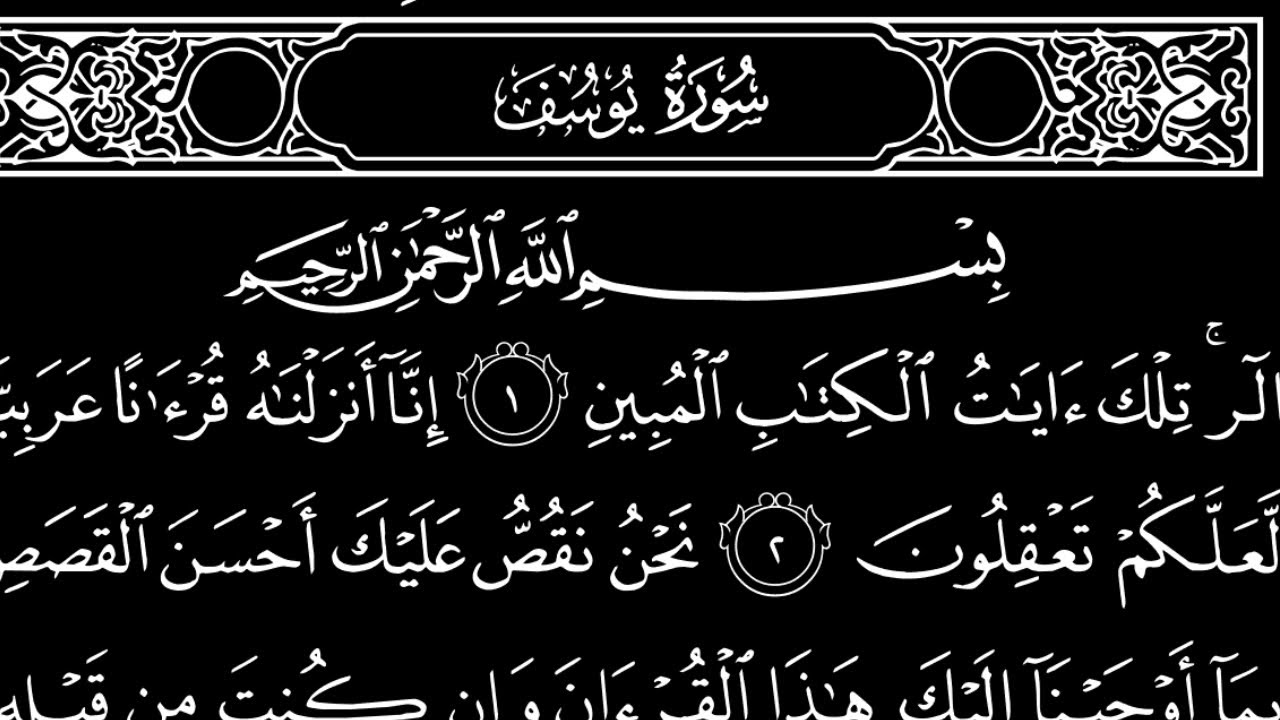 سُورَةُ يُوسُفَ
بِسْمِ ٱللَّهِ ٱلرَّحْمَٰنِ ٱلرَّحِيمِ
الٓر ۚ تِلْكَ ءَايَٰتُ ٱلْكِتَٰبِ ٱلْمُبِينِ ١ إِنَّآ أَنزَلْنَٰهُ قُرْءَٰنًا
لَّعَلَّكُمْ تَعْقِلُونَ ٢ نَحْنُ نَقُصُّ عَلَيْكَ أَحْسَنَ ٱلْقَصَصِ
بِمَآ أَوْحَيْنَآ إِلَيْكَ هَٰذَا ٱلْقُرْءَانَ وَإِن كُنتَ مِن قَبْلِهِ